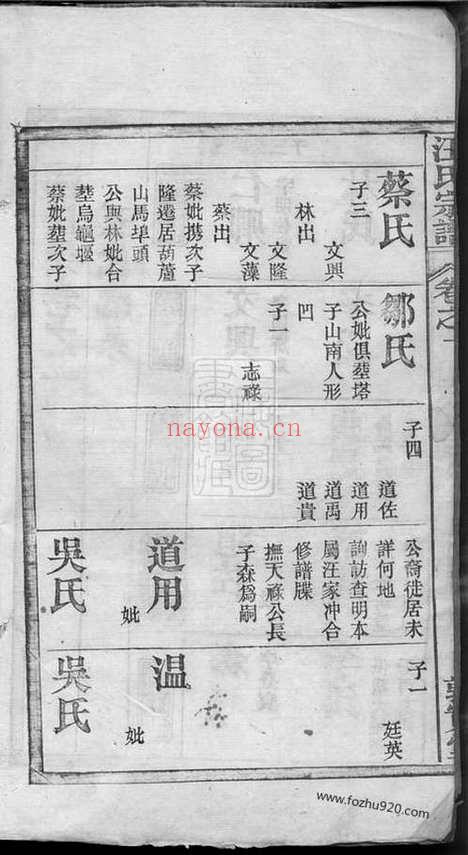 汪氏宗譜
卷之
蔡氏
子三
文興
林出
文隆
文藻
蔡出
蔡妣携次子
隆遷居葫蘆
山馬埠頭
公與林妣合
塟烏龜堰
蔡妣塟次子
鄒氏
公妣俱塟塔
子山南人形
凹
子一
志祿
子四
道佐
道用
道禹
道貴
公裔徙居未
詳何地
詢訪查明本
屬汪家冲合
修譜牒
撫天祿公長
子森爲嗣
道用
妣
吳氏
子一
廷英
温
妣
吳氏
nayona.cn
www.fozhu920.com